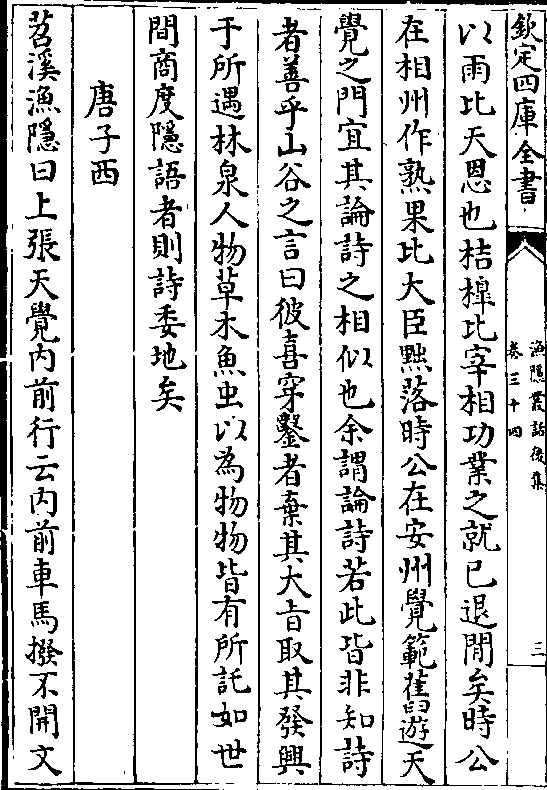 欽定四庫全書
漁隱叢話後集
卷三十四
三
以雨比天恩也桔橰比宰相功業之就已退閒矣時公
在相州作熟果比大臣黜落時公在安州覺範舊遊天
覺之門宜其論詩之相似也余謂論詩若此皆非知詩
者善乎山谷之言曰彼喜穿鑿者棄其大旨取其發興
于所遇林泉人物草木魚虫以為物物皆有所託如世
間商度隱語者則詩委地矣
唐子西
苕溪漁隱曰上張天覺內前行云內前車馬撥不開文